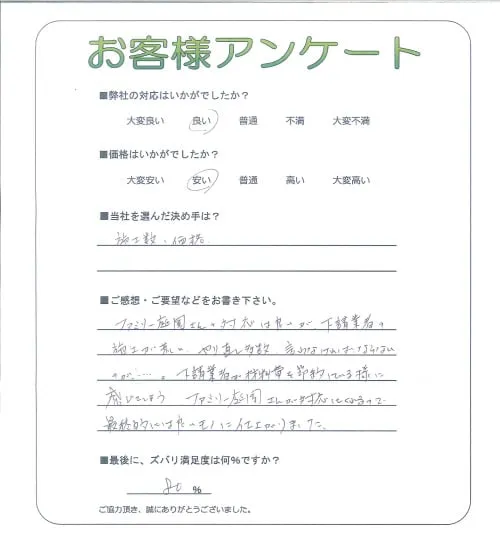 お客様アンケート
■弊社の対応はいかがでしたか？
大変良い 良い 普通 不満 大変不満
■価格はいかがでしたか？
大変安い 安い 普通 高い 大変高い
■当社を選んだ決め手は？
施工数・価格
■ご感想・ご要望などをお書き下さい。
ファミリー庭園さんの対応は良いが、下請業者の
施工が荒い、やり直し多数、言わなければならない
のが……。下請業者が材料費を節約している様に
感じてしまう ファミリー庭園さんが対応してくるので
最終的には良いモノに仕上がりました。
■最後に、ズバリ満足度は何％ですか？
80 ％
ご協力頂き、誠にありがとうございました。